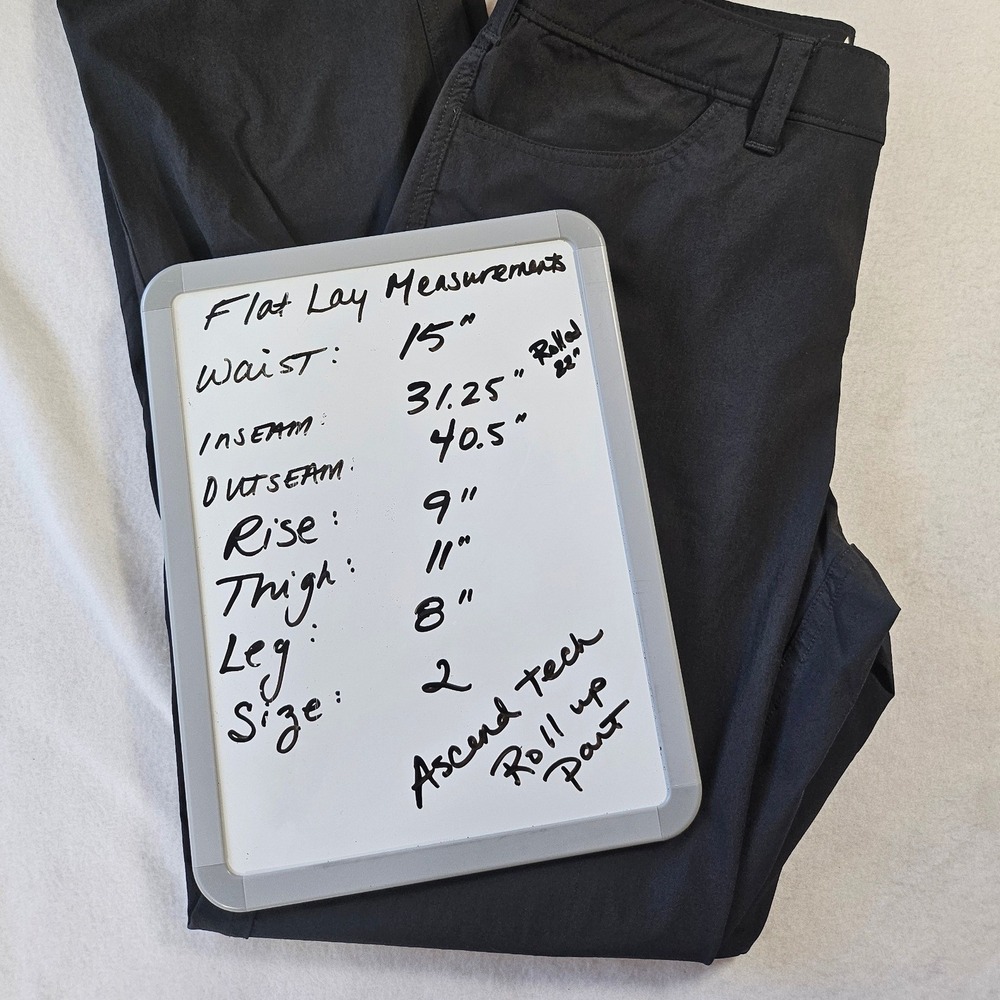 Flat Lay Measurements
Waist: 15"
Inseam: 31.25" Rolled 22"
Outseam: 40.5"
Rise: 9"
Thigh: 11"
Leg: 8"
Size: 2
Ascend Tech
Roll up
Pant